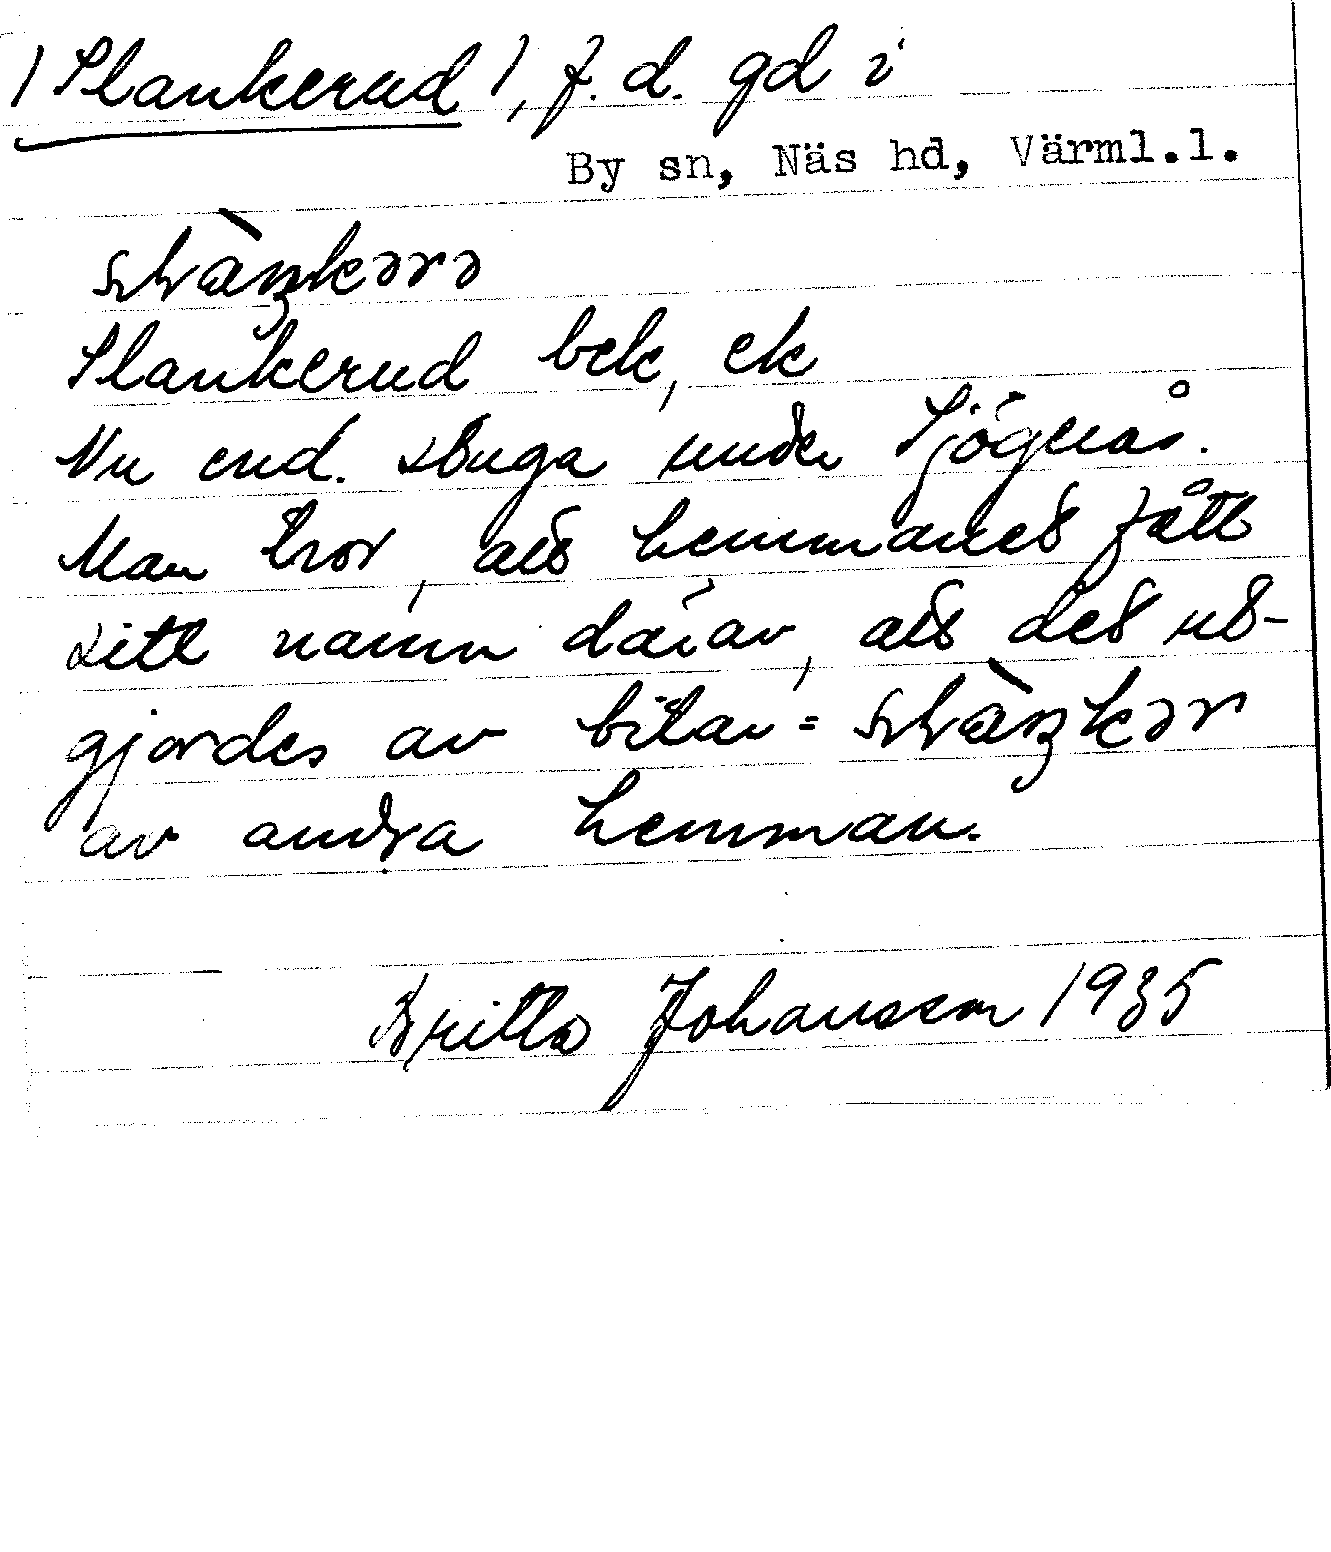 (Slankerud), f.d. gd i
By sn, Näs hd, Värml.l.
slàŋkərə
Slankerud bek, ek
Nu end. stuga under Sjögerås.
Man tror, att hemmanet fått
sitt namn därav, att det ut-
gjordes av bitar = slàŋkər
av andra hemman.
Britta Johansson 1935